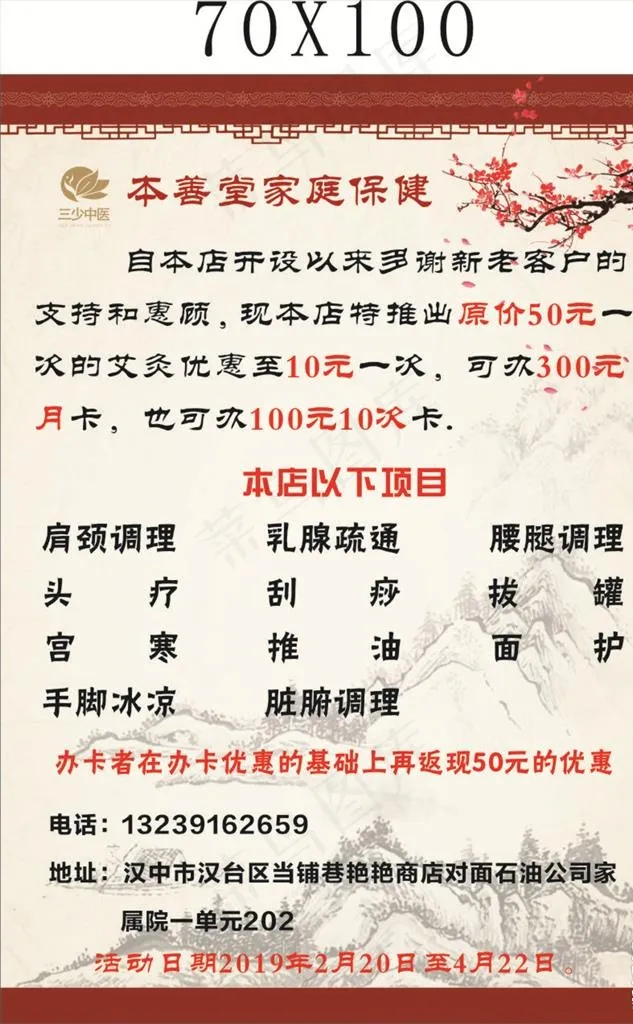 70X100
三少中医
本善堂家庭保健
自本店开设以来多谢新老客户的
支持和惠顾,现本店特推出原价50元一
次的艾灸优惠至10元一次，可办300元
月卡，也可办100元10次卡.
本店以下项目
肩颈调理 乳腺疏通 腰腿调理
头疗 刮痧 拔罐
宫寒 推油 面护
手脚冰凉 脏腑调理
办卡者在办卡优惠的基础上再返现50元的优惠
电话：13239162659
地址：汉中市汉台区当铺巷艳艳商店对面石油公司家
属院一单元202
活动日期2019年2月20日至4月22日。